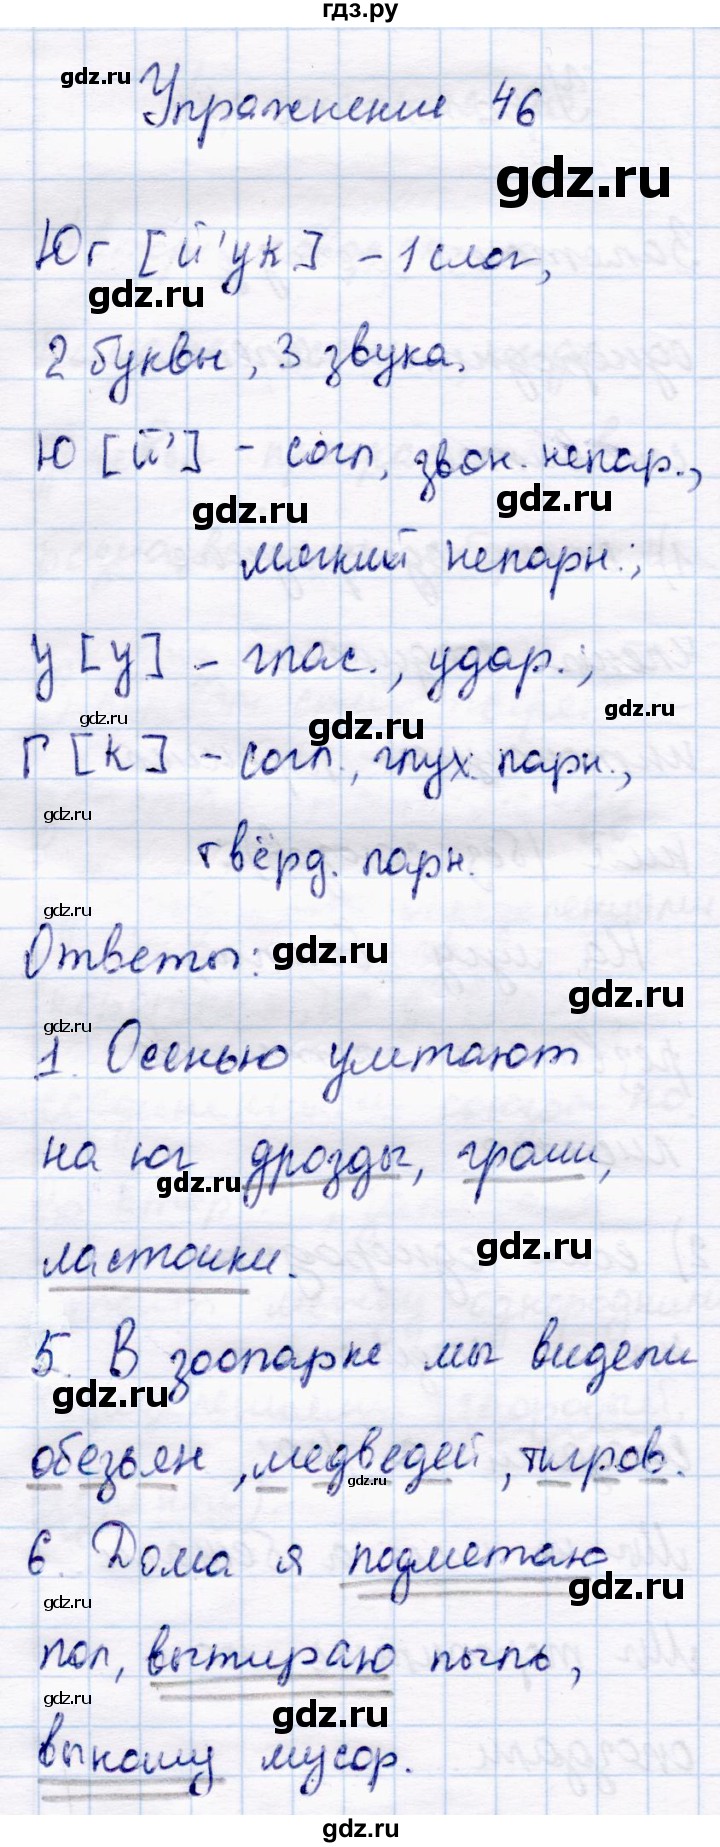 гдз.ру
gdz.ru
Упражнение 46
gdz.ru
Юг [й'ук] - 1 слог,
gdz.ru
2 буквы, 3 звука.
Ю [й'] - согл, звон. непар.,
gdz.ru
gdz.ru
мягкий непарн.;
У [у] - глас., удар.;
gdz.ru
gdz.ru
gdz.ru
Г [к] - согл., глух. парн.,
gdz.ru
твёрд. парн.
gdz.ru
Ответы:
gdz.ru
gdz.ru
gdz.ru
1. Осенью улетают
на юг дрозды, грачи,
gdz.ru
ласточки.
gdz.ru
5. В зоопарке мы видели
gdz.ru
обезьян, медведей, тигров.
gdz.ru
6. Дома я подметаю
gdz.ru
gdz.ru
пол, вытираю пыль,
gdz.ru
gdz.ru
выношу мусор.
gdz.ru